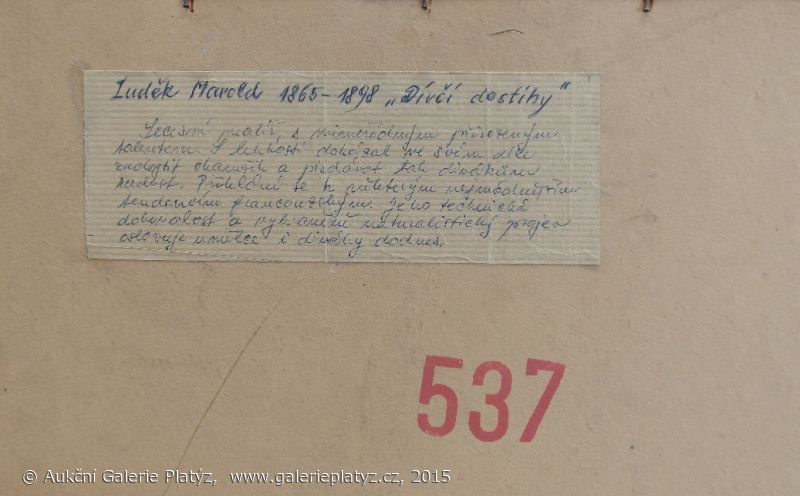 Luděk Marold 1865-1898 „Dívčí dostihy"
Secesní malíř s mimořádným přirozeným
talentem. S lehkostí dokázal ve svém díle
zachytit okamžik a předávat tak divákům
radost. Přikláněl se k některým nejmódnějším
tendencím francouzským. Jeho technická
dokonalost a vybraněně naturalistický projev
oslovuje umělce i diváky dodnes.
537
© Aukční Galerie Platýz, www.galerieplatyz.cz, 2015